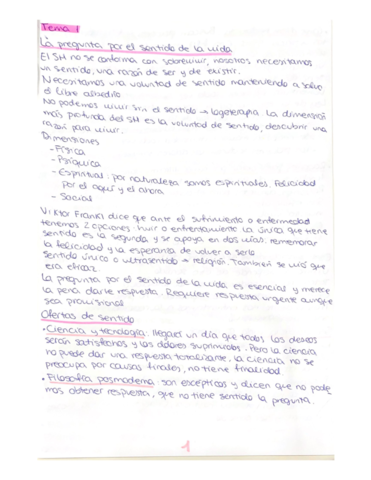 Tema 1
La pregunta por el sentido de la vida
El SH no se conforma con sobrevivir, nosotros necesitamos
un sentido, una razón de ser y de existir.
Necesitamos una voluntad de sentido manteniendo a salvo
el libre albedrío.
No podemos vivir sin el sentido → logoterapia la dimensión
más profunda del SH es la voluntad de sentido, descubrir una
razón para vivir.
Dimensiones
- Física
- Psíquica
- Espiritual: por naturaleza somos espirituales. Felicidad
por el aquí y el ahora
- Social
Viktor Frankl dice que ante el sufrimiento o enfermedad
tenemos 2 opciones: huir o enfrentamiento la única que tiene
sentido es la segunda y se apoya en dos vías: rememorar
la felicidad y la esperanza de volver a serlo
sentido único o ultrasentido → religión. También se vió que
era eficaz
La pregunta por el sentido de la vida es esencial y merece
la pena darle respuesta. Requiere respuesta urgente aunque
sea provisional
Ofertas de sentido
• Ciencia y tecnología: llegará un día que todos los deseos
serán satisfechos y los dolores suprimidos. Pero la ciencia
no puede dar una respuesta totalizante, la ciencia no se
preocupa por causas finales, no tiene finalidad
• Filosofía posmoderna: son escépticos y dicen que no pode
mos obtener respuesta, que no tiene sentido la pregunta.
1